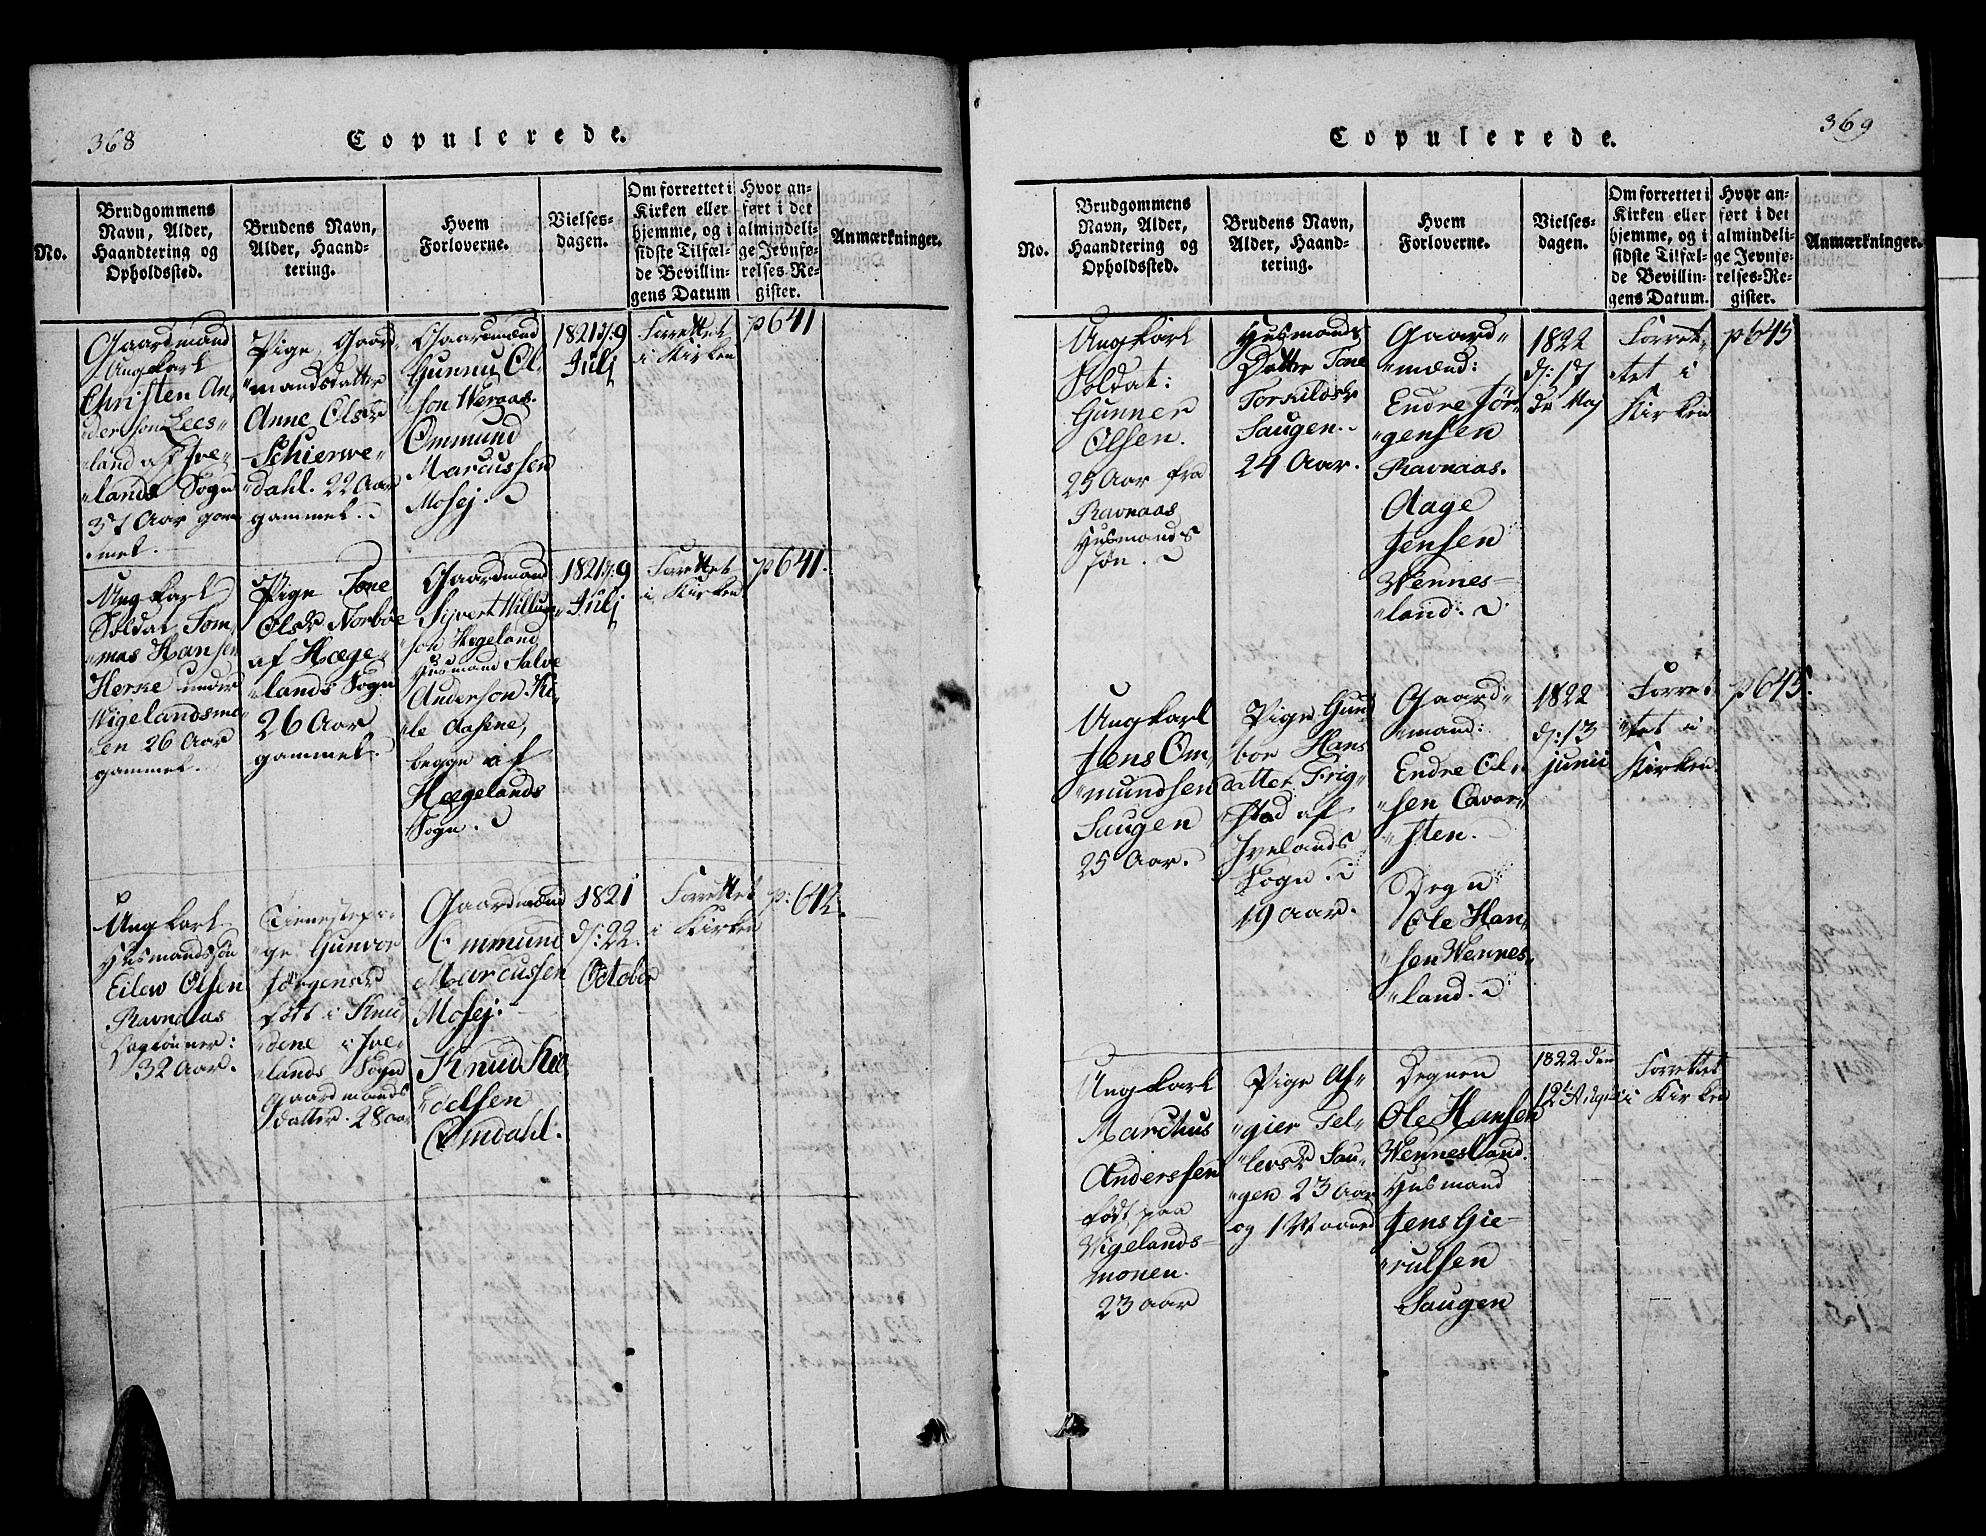 368
Copulerede.
No.
Brudgommens
Navn, Alder,
Haandtering og
Opholdssted.
Brudens Navn,
Alder, Haand-
tering.
Hvem
Forloverne.
Vielses-
dagen.
Om forrettet i
Kirken eller
hjemme, og i
sidste Tilfæl-
de Bevillin-
gens Datum
Hvor an-
ført i det
almindeli-
ge Jevnfø-
relses-Re-
gister.
Anmærkninger.
Gaardmand
Ungkarl
Christen An-
derson Lees-
land af Ive-
lands Sogn
37 Aar gam
mel.
Pige, Gaard-
mandsdatter
Anne Olsdr
Schierwe-
dahl. 22 Aar
gammel.
Gaardmænd
Gunnu Ol-
son Weraas.
Ommund
Marcussen
Mosej.
1821 d: 9
Julj
Forrettet
i Kirken
p 641
Ung karl
Soldat Tom-
mas Hansen
Herske under
Wigelandsmo-
en 26 Aar
gammel.
Pige Tone
Olsdr Norbøe
af Hæge-
lands Sogn
26 Aar
gammel.
Gaardmand
Syvert Willum-
son Hægeland,
Husmand Salve
Anderson Ki-
le Aasene,
begge af
Hægelands
Sogn.
1821 d: 9
Julj
Forrettet
i Kirken
p 641.
Ung karl
Husmandssøn
Eilew Olsen
Ravnaas
32 Aar.
Tienestepi-
ge Gunvor
Jørgensdr
født i Knu-
dene i Ive-
lands Sogn
Gaardmands
datter. 28 aar
Gaardmænd
Ommund
Marcussen
Mosej.
Knud Kie-
delsen
Omdahl.
1821
d: 22.
October
Forrettet
i Kirken
p: 642.
369
Copulerede.
No.
Brudgommens
Navn, Alder,
Haandtering og
Opholdssted.
Brudens Navn,
Alder, Haand-
tering.
Hvem
Forloverne.
Vielses-
dagen.
Om forrettet i
Kirken eller
hjemme, og i
sidste Tilfæl-
de Bevillin-
gens Datum.
Hvor an-
ført i det
almindeli-
ge Jevnfø-
relses-Re-
gister.
Anmærkninger.
Ungkarl
Soldat:
Gunner
Olsen.
25 Aar fra
Ravnaas
Husmands
søn.
Husmands
Datter Tone
Torkildsdr
Saugen.
24 Aar.
Gaard-
mænd:
Endre Jør-
gensen
Ravnaas.
Aage
Jensen
Wennes-
land.
1822
d: 17
de Maj
Forret-
tet i
Kirken
p 645
Ungkarl
Jens Om-
mundsen
Saugen
25 Aar.
Pige Gun
bor Hans
datter Frig-
stad af
Ivelands
Sogn.
19 aar.
Gaard-
mand:
Endre Ol-
sen Qvar-
sten.
Degn
Ole Han-
sen Wennes-
land.
1822
d: 13
junii
Forre-
tet i
Kirken
p 645.
Ungkarl
Marchus
Anderssen
født paa
Wigelands-
monen.
23 aar
Pige As-
gier Tel-
lefsdr Sau-
gen 23 Aar
og 1 Maaned
Degnen
Ole Hansen
Wennesland.
Husmand
Jens Gie-
rulsen
Saugen
1822 den
12t August
Forrettet
i Kirken